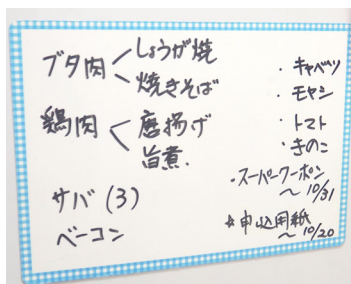 ブタ肉
しょうが焼
焼きそば
鶏肉
唐揚げ
旨煮
サバ (3)
ベーコン
・キャベツ
・モヤシ
・トマト
・きのこ
・スーパークーポン
～10/31
☆申込用紙
～10/20